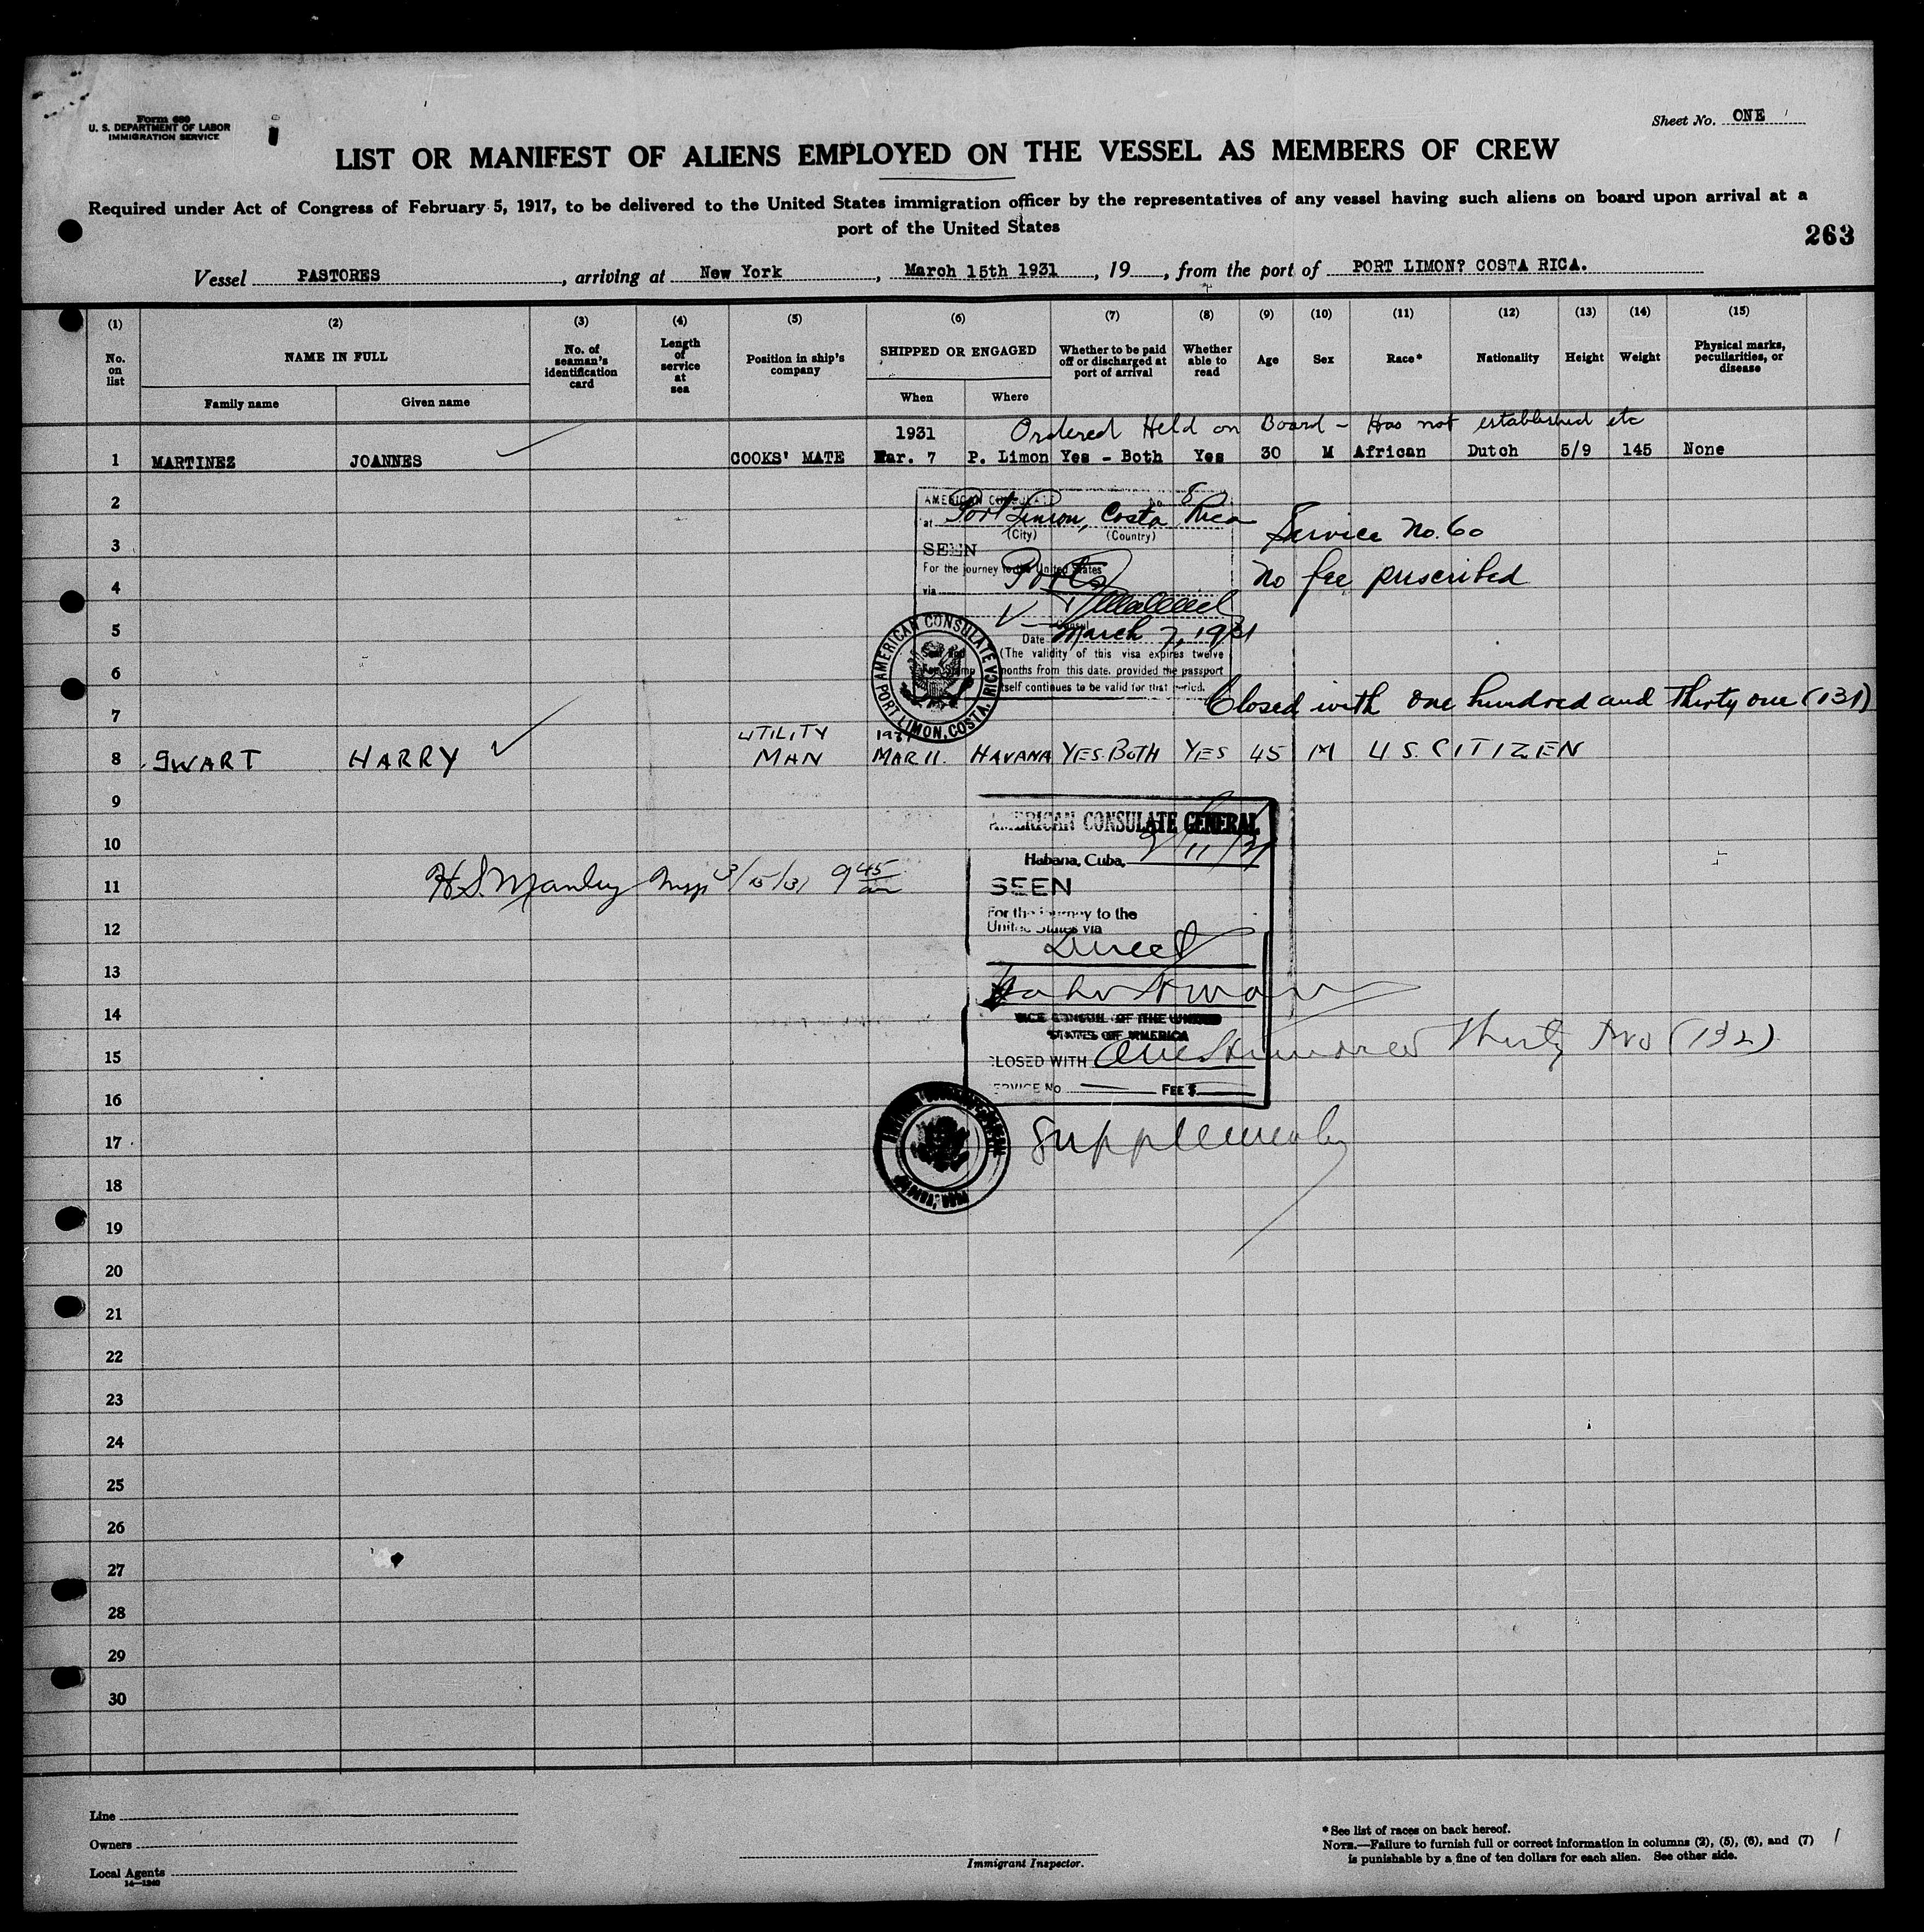 Form 680
U. S. DEPARTMENT OF LABOR
IMMIGRATION SERVICE
Sheet No. ONE
LIST OR MANIFEST OF ALIENS EMPLOYED ON THE VESSEL AS MEMBERS OF CREW
Required under Act of Congress of February 5, 1917, to be delivered to the United States immigration officer by the representatives of any vessel having such aliens on board upon arrival at a
port of the United States
263
Vessel PASTORES, arriving at New York, March 15th 1931, 19, from the port of PORT LIMON? COSTA RICA.
(1) (2) (3) (4) (5) (6) (7) (8) (9) (10) (11) (12) (13) (14) (15)
No. on list
NAME IN FULL
Family name
Given name
No. of seaman's identification card
Length of service at sea
Position in ship's company
SHIPPED OR ENGAGED
When
Where
Whether to be paid off or discharged at port of arrival
Whether able to read
Age
Sex
Race*
Nationality
Height
Weight
Physical marks, peculiarities, or disease
1931 Ordered Held on Board - Has not established etc
1 MARTINEZ JOANNES COOKS' MATE Mar. 7 P. Limon Yes - Both Yes 30 M African Dutch 5/9 145 None
2
AMERICAN CONSULATE No 8
at Port Limon, Costa Rica
(City) (Country)
Service No. 60
3
SEEN
For the journey to the United States
No fee prescribed
4
via Ports
5
Consul
Date March 7, 1931
(The validity of this visa expires twelve
months from this date, provided the passport
itself continues to be valid for that period.
Seal and
Fee Stamp
AMERICAN CONSULATE PORT LIMON, COSTA RICA
6
Closed with one hundred and thirty one (131)
7
UTILITY 1931
8 SWART HARRY MAN MAR 11. HAVANA YES-BOTH YES 45 M U.S. CITIZEN
9
AMERICAN CONSULATE GENERAL
10
Habana, Cuba, 3/11/31
11
H.S. Manley Insp 3/15/31 9 45 am
SEEN
For the journey to the
United States via
12
Direct
13
14
VICE CONSUL OF THE UNITED
STATES OF AMERICA
15
CLOSED WITH One Hundred Thirty two (132)
16
SERVICE No FEE $
17
Supplementary
18
19
20
21
22
23
24
25
26
27
28
29
30
Line
Owners
Local Agents
14—1240
Immigrant Inspector.
* See list of races on back hereof.
NOTE.—Failure to furnish full or correct information in columns (2), (5), (6), and (7)
is punishable by a fine of ten dollars for each alien. See other side.